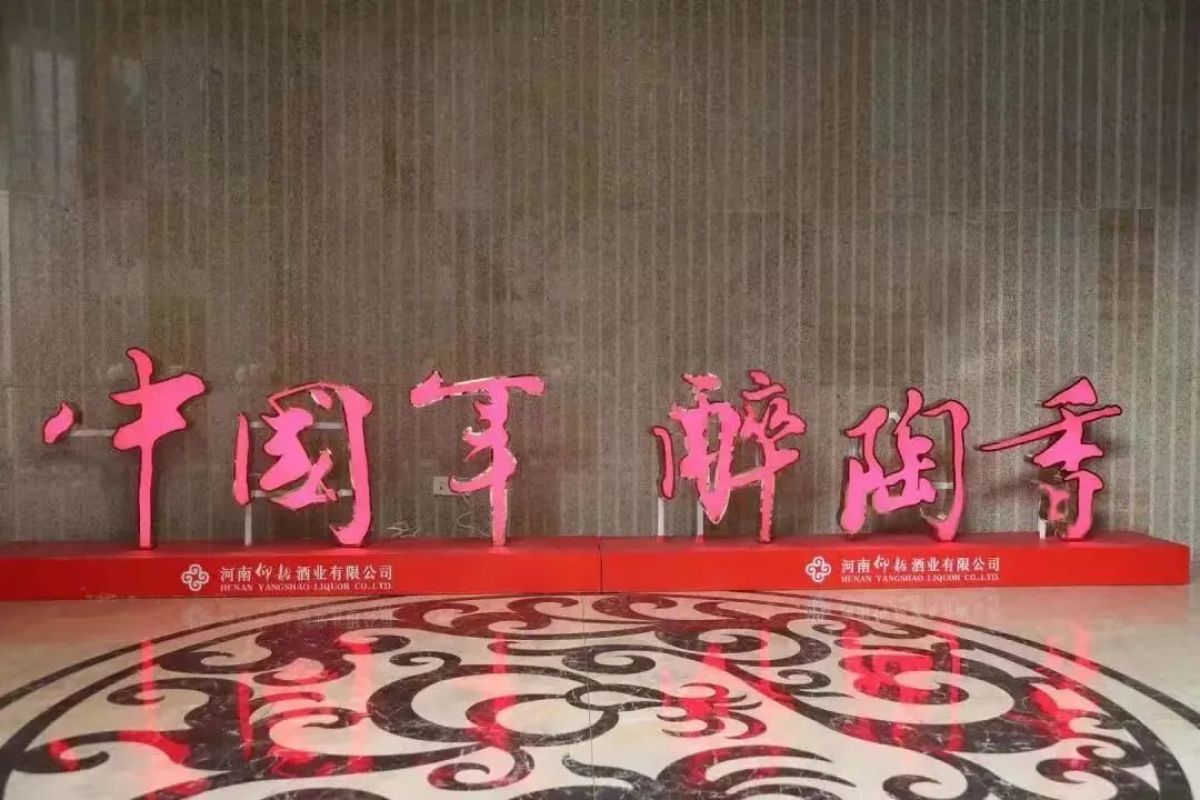 中國年 醉陶香
河南仰韶酒业有限公司
HENAN YANGSHAO LIQUOR CO.,LTD.
河南仰韶酒业有限公司
HENAN YANGSHAO LIQUOR CO.,LTD.